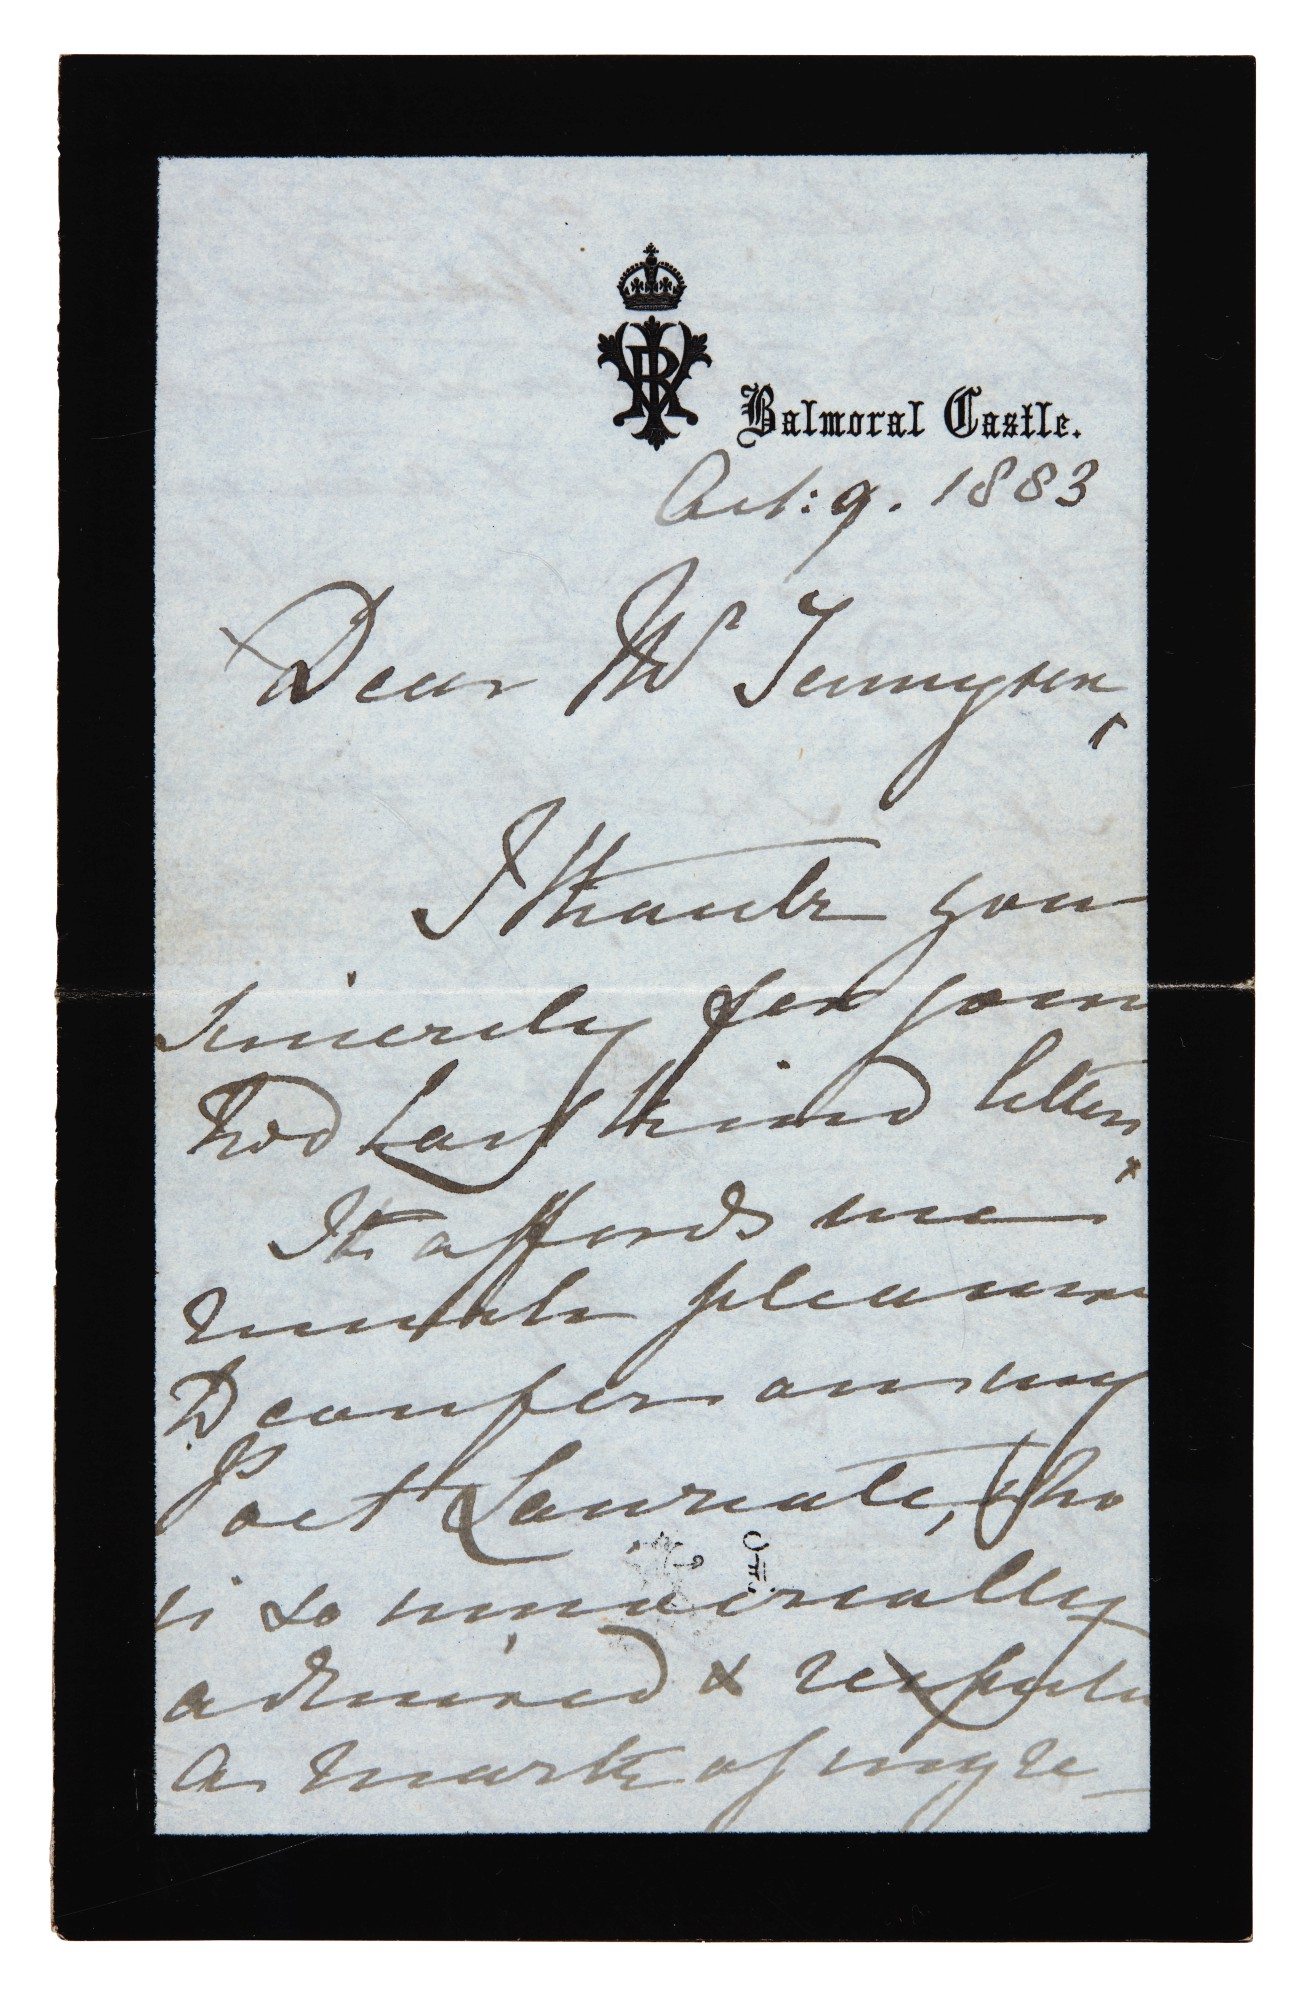 VRI
Balmoral Castle.
Oct: 9. 1883
Dear Mr Tennyson,
I thank you
sincerely for your
two last kind letters.
It affords me
much pleasure
to confer on my
Poet Laureate, who
is so universally
admired & respected
a mark of my re-